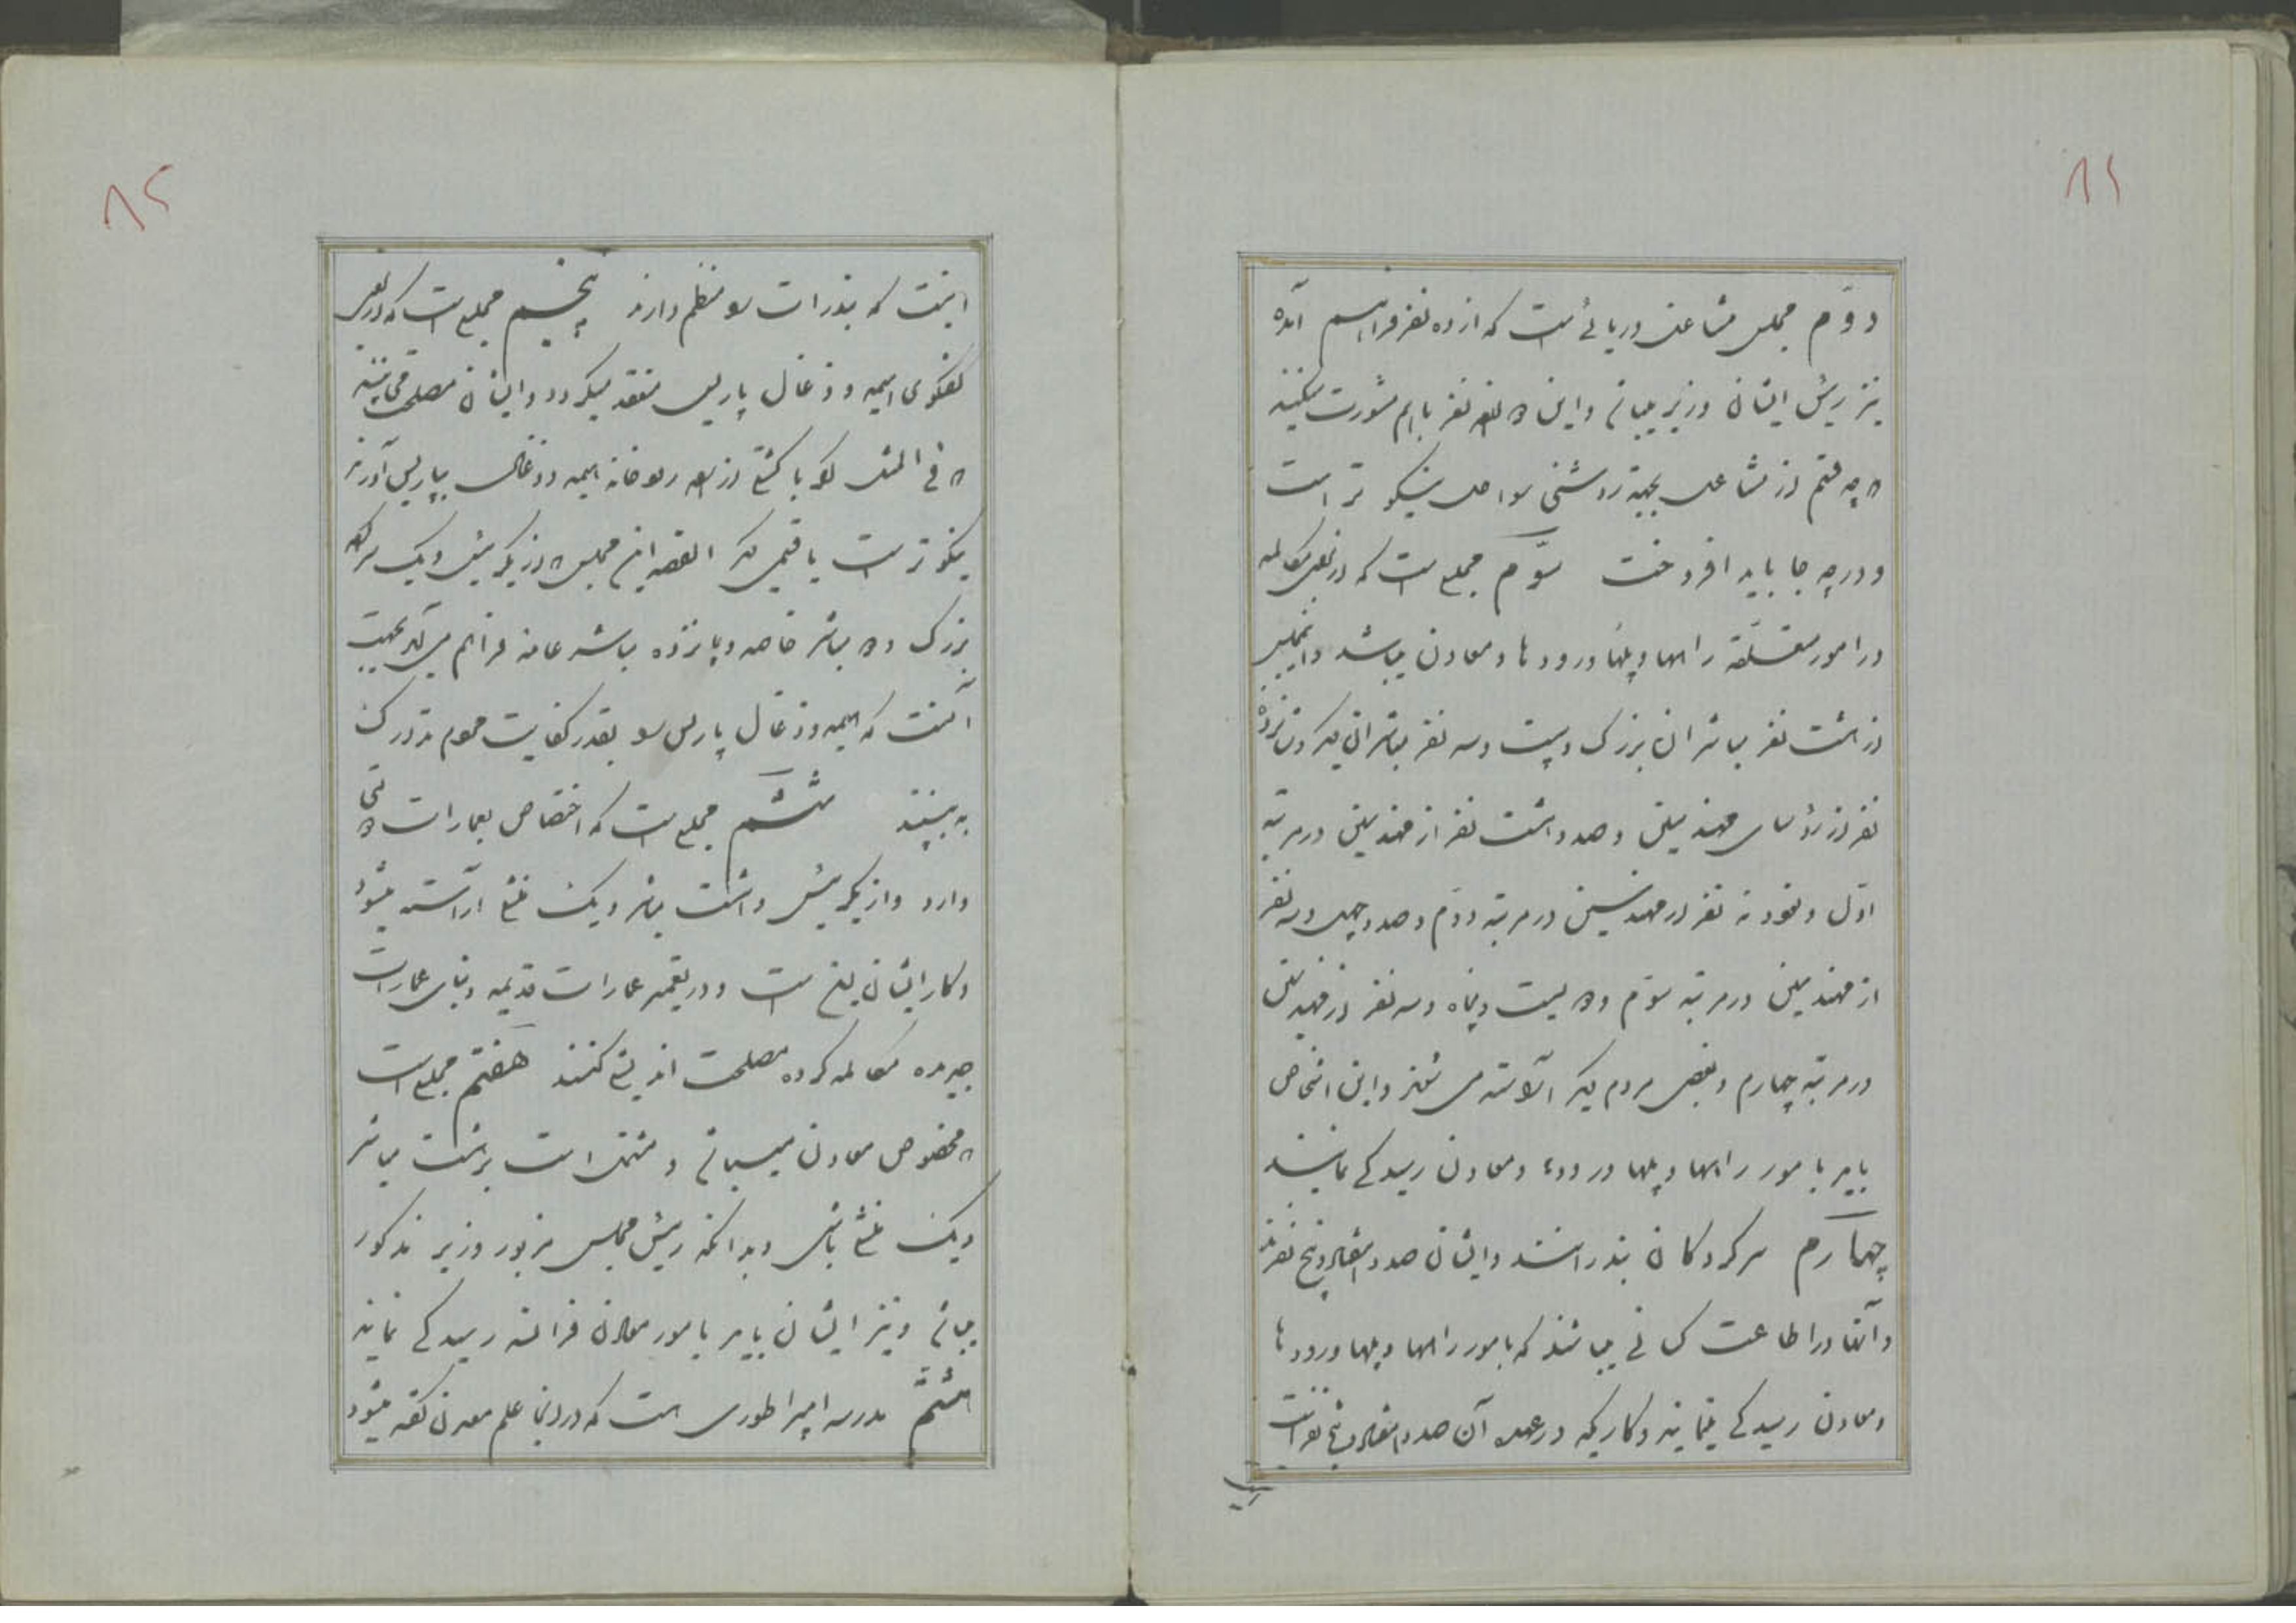 ۸۱
دوّم مجلس مشاعل دریائی است که از ده نفر فراهم آمده
نیز رئیس ایشان وزیر میباشد و این ده نفر باهم مشورت میکنند
که چه قسم از مشاعل بجهة روشنی سواحل نیکو تر است
و در چه جا باید افروخت سوّم مجلسی است که در آن مکالمه
در امور متعلّقه راهها و پلها و رودها و معادن میباشد و این مجلس
از هشت نفر مباشران بزرگ و بیست و سه نفر مباشران دیگر و پانزده
نفر از رؤسای مهندسین و صد و هشت نفر از مهندسین در مرتبه
اوّل و نود و نه نفر از مهندسین در مرتبه دوّم و صد و چهل و سه نفر
از مهندسین در مرتبه سوّم و دویست و پنجاه و سه نفر از مهندسین
در مرتبه چهارم و بعضی مردم دیگر آراسته می شود و این اشخاص
باید بامور راهها و پلها و رودها و معادن رسیدگی نمایند
چهارم سرکردگان بندراند و ایشان صد و هفتاد و پنج نفرند
و آنها در اطاعت کسانی میباشند که بامور راهها و پلها و رودها
و معادن رسیدگی مینمایند و کاریکه در عهده آن صد و هفتاد و پنج نفر است
۸۲
اینست که بندرات را منظم دارند پنجم مجلسی است که در آن
گفتگوی هیمه و ذغال پاریس منعقد میگردد و ایشان مصلحت می بینند
که فی المثل گویا کشتی از راه رودخانه هیمه و ذغال بپاریس آورند
نیکو تر است یا قسمی دیگر القصه این مجلس که از یک رئیس و یک سرکرده
بزرگ و ده مباشر خاصه و پانزده مباشر عامه فراهم می آید بجهت
آنست که هیمه و ذغال پاریس را بقدر کفایت مردم تدارک
به بینند ششم مجلسی است که اختصاص بعمارات
دارد و از یک رئیس و هشت مباشر و یک منشی آراسته میشود
و کار ایشان این است که در تعمیر عمارات قدیمه و بنای عمارات
جدیده مکالمه کرده مصلحت اندیشی کنند هفتم مجلسی است
که مخصوص معادن میباشد و مشتمل است بر هشت مباشر
و یک منشی باشی و بدانکه رئیس مجلس مزبور وزیر مذکور
میباشد و نیز ایشان باید بامور معادن فرانسه رسیدگی نمایند
هشتم مدرسه امپراطوری است که در آنجا علم معدن گفته میشود